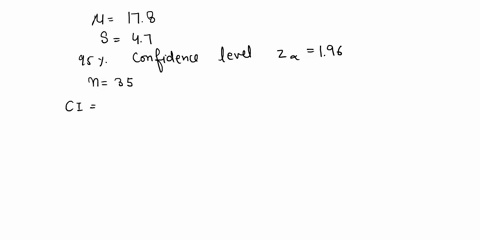 μ = 17.8
S = 4.7
95 %. Confidence level Zα = 1.96
n = 35
CI =